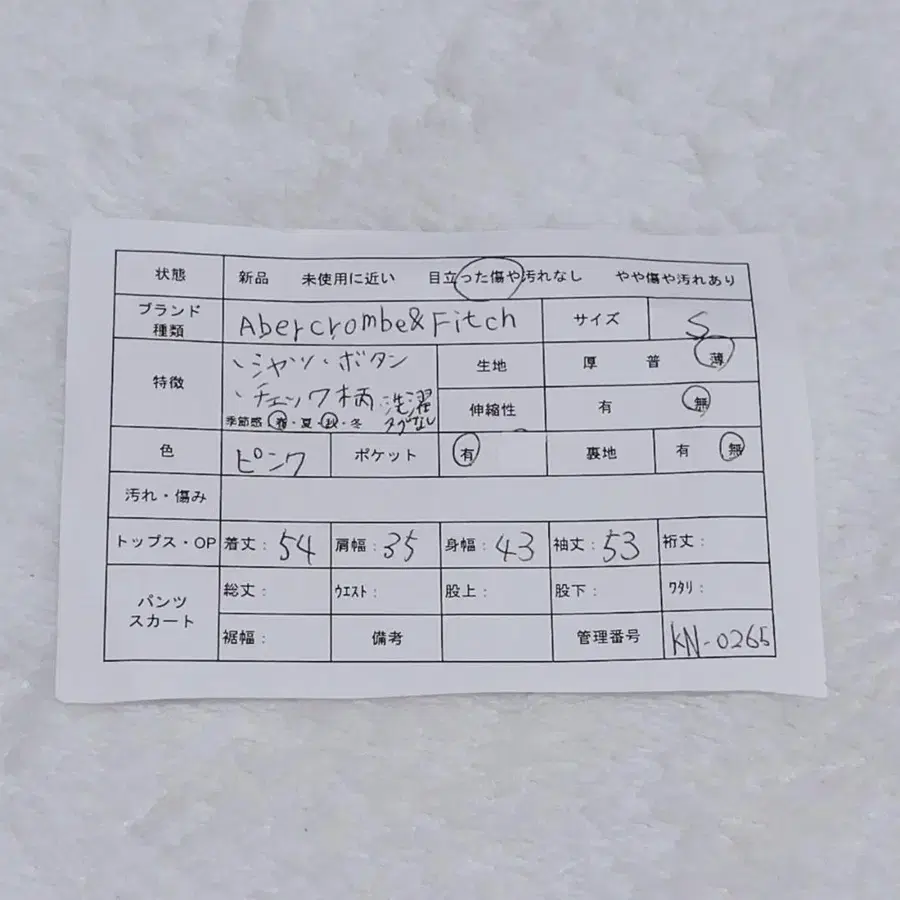 状態 新品 未使用に近い 目立った傷や汚れなし やや傷や汚れあり
ブランド種類 Abercrombe&Fitch サイズ S
特徴 ・シャツ・ボタン 生地 厚 普 薄
・チェック柄 洗濯タグなし 伸縮性 有 無
季節感 春・夏・秋・冬
色 ピンク ポケット 有 裏地 有 無
汚れ・傷み
トップス・OP 着丈: 54 肩幅: 35 身幅: 43 袖丈: 53 裄丈:
パンツ スカート 総丈: ウエスト: 股上: 股下: ワタリ:
裾幅: 備考 管理番号 KN-0265